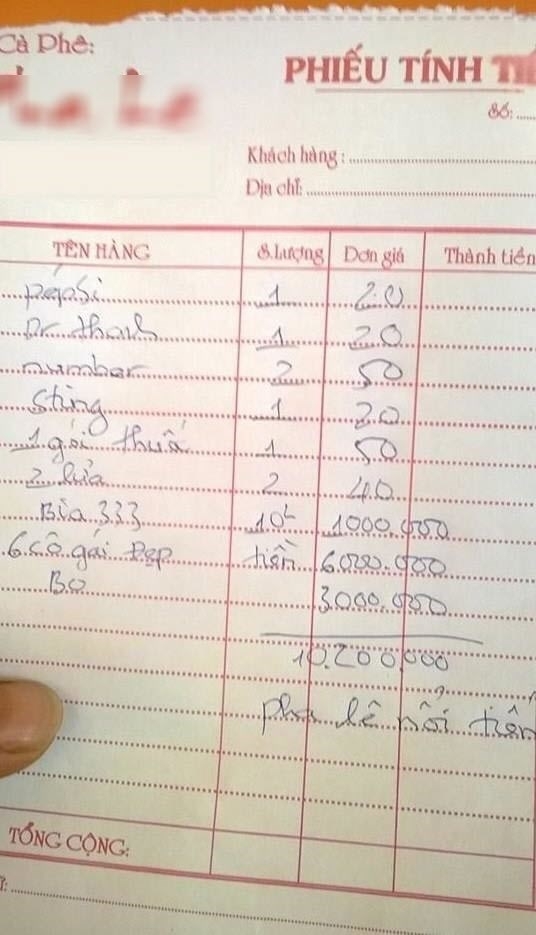 Cà Phê:
PHIẾU TÍNH TI
Số: ......
Khách hàng : ..............................
Địa chỉ: ..............................
TÊN HÀNG S.Lượng Đơn giá Thành tiền
pepsi 1 20
Dr thanh 1 20
number 2 50
Sting 1 20
1 gói thuố 1 50
2 lửa 2 40
Bia 333 10L 1000.000
6 cô gái Đẹp tiền 6000.000
Bo 3000.000
10.200.000
pha lê nổi tiến
TỔNG CỘNG: